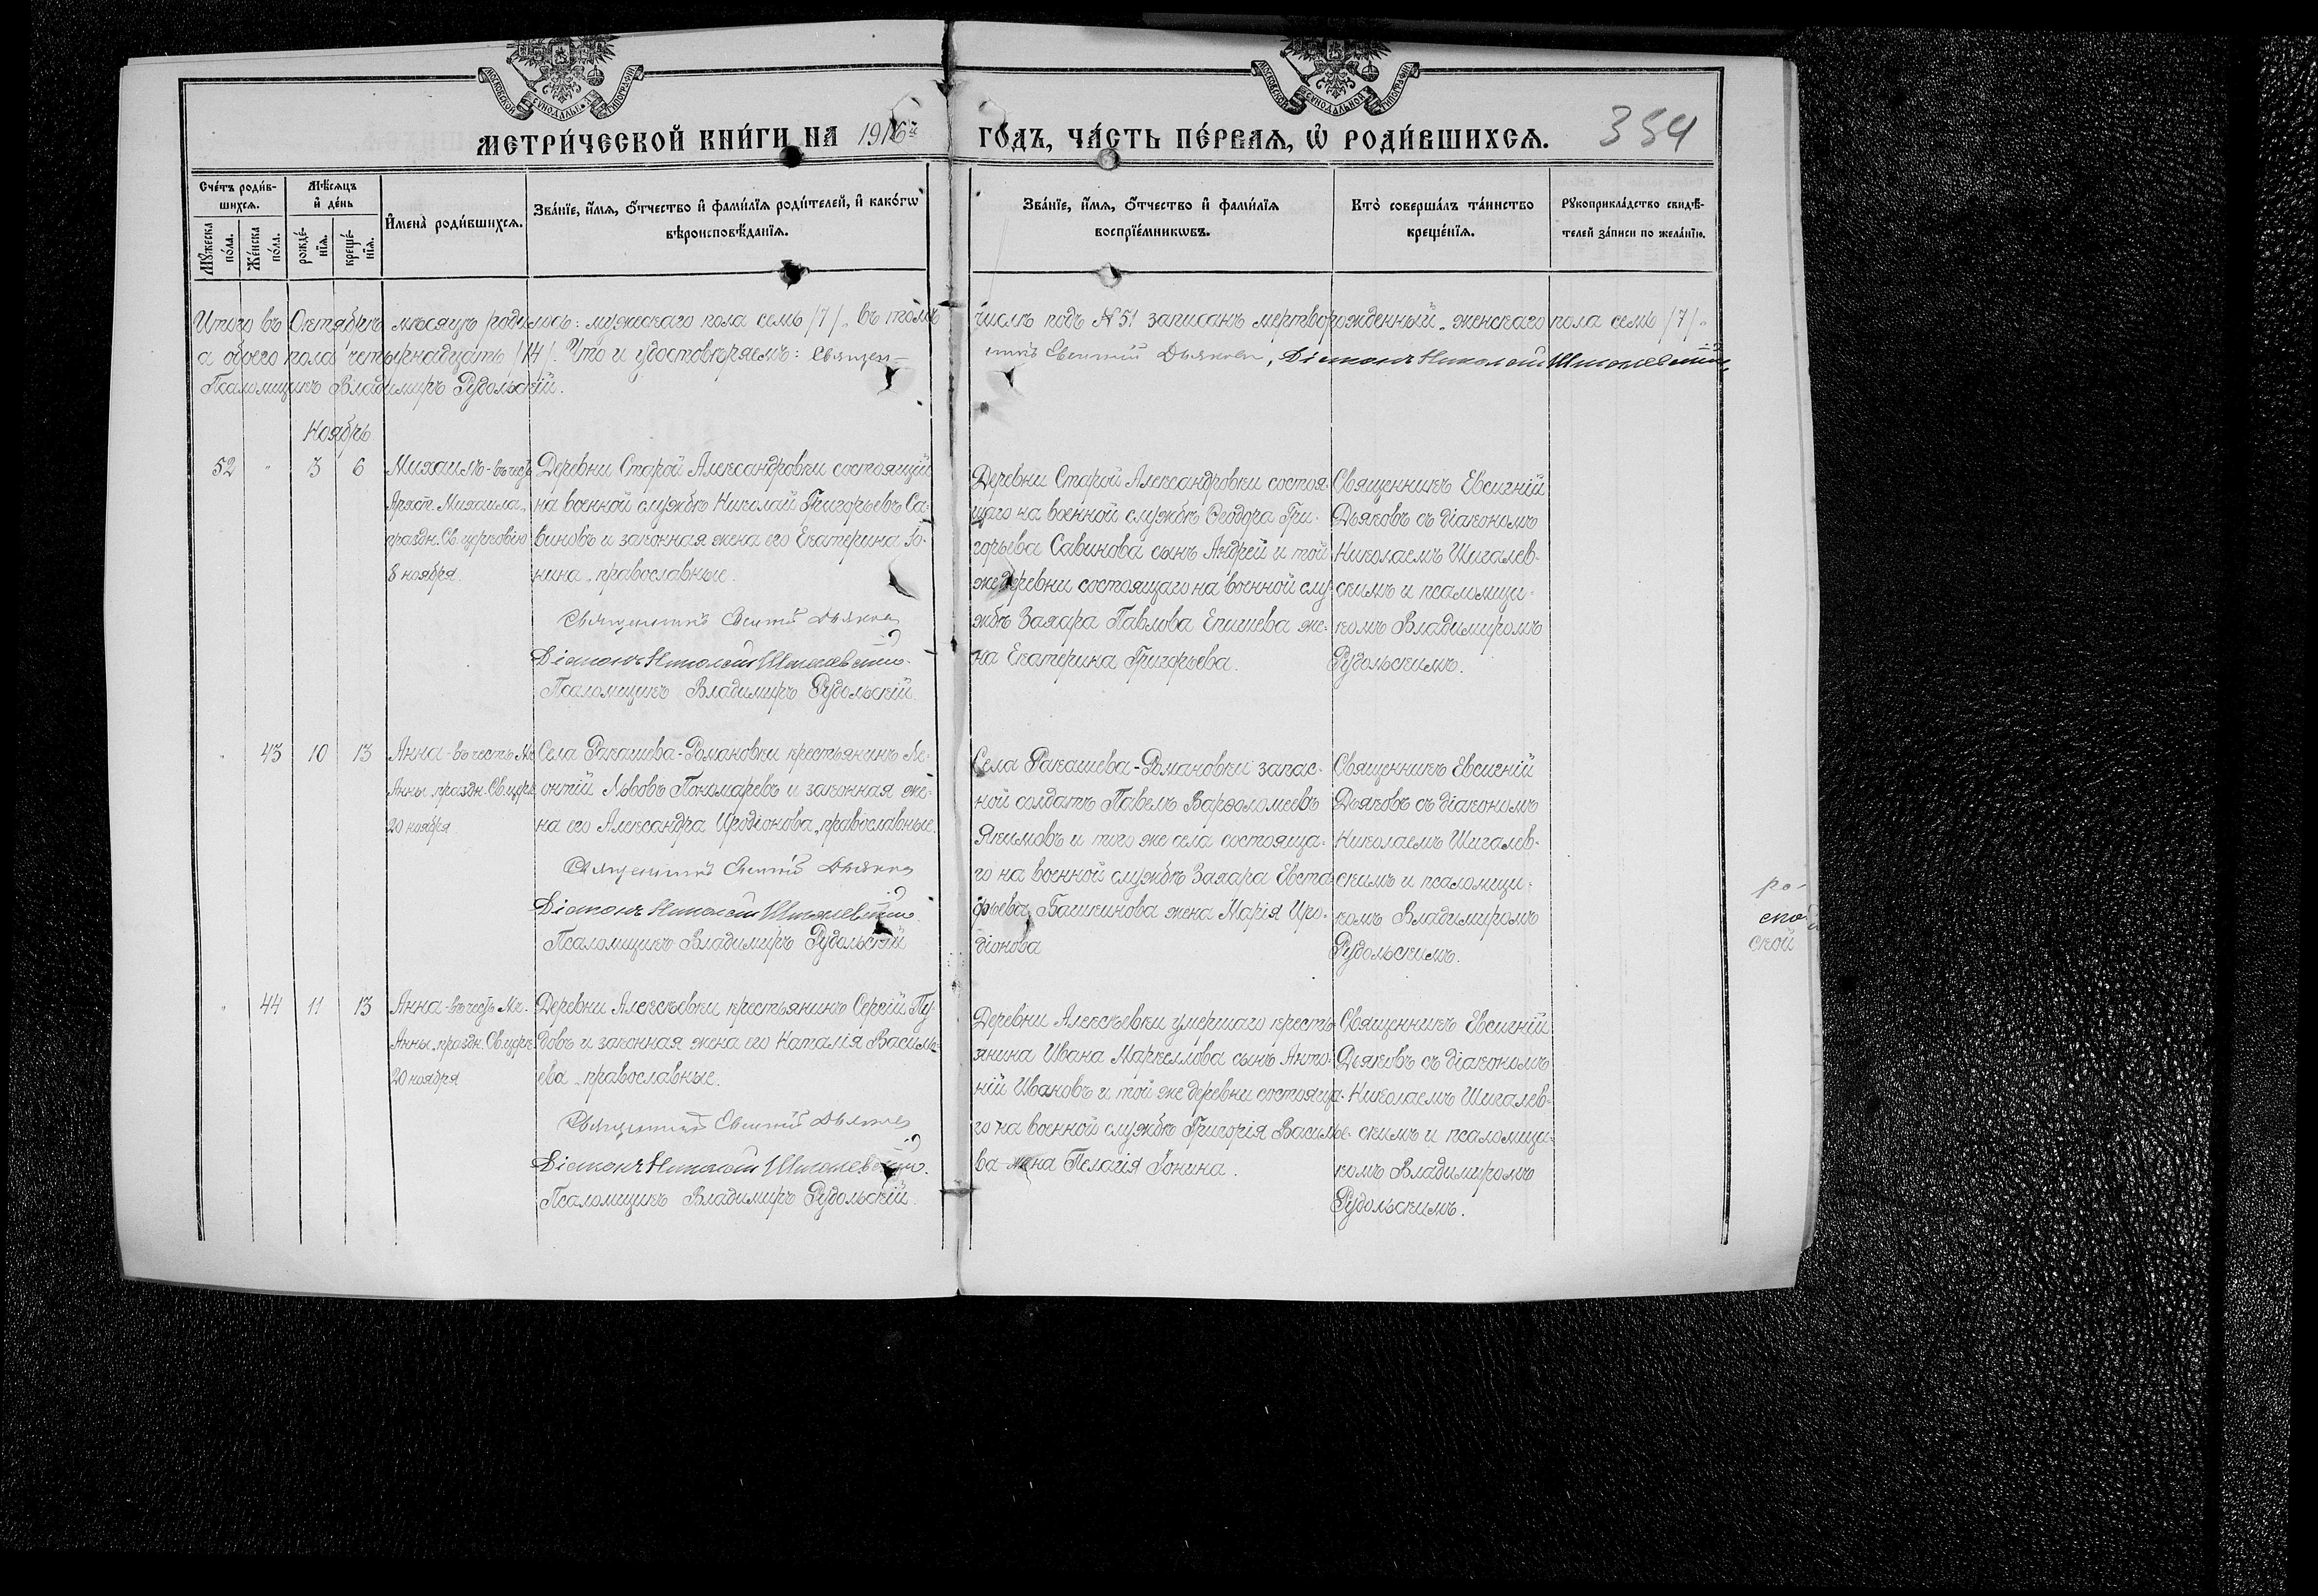 МОСКОВСКОЙ СУНОДАЛЬНОЙ ТИПОГРАФІИ
МОСКОВСКОЙ СУНОДАЛЬНОЙ ТИПОГРАФІИ
МЕТРИ́ЧЕСКОЙ КНИ́ГИ НА 1916й
ГО́ДЪ, ЧА́СТЬ ПЕ́РВАѦ, Ѡ РОДИ́ВШИХСѦ.
354
Сче́тъ роди́в-
шихсѧ.
Мѣ́сѧцъ
и де́нь
Мꙋ́жеска по́ла.
Же́нска по́ла.
рожде́-
нїѧ.
креще́-
нїѧ.
Имена̀ роди́вшихсѧ.
Зва́нїе, и́мѧ, ѻ́тчество и фами́лїѧ роди́телей, и како́гѡ
вѣроисповѣ́данїѧ.
Зва́нїе, и́мѧ, ѻ́тчество и фами́лїѧ
воспрїе́мникѡвъ.
Кто̀ соверша́лъ та́инство
креще́нїѧ.
Рꙋкоприкла́дство свидѣ́-
телей за́писи по жела́нїю.
Итого въ Октябрѣ мѣсяцѣ родилось: мужескаго пола семь /7/, въ томъ числѣ подъ №51 записанъ мертворожденный, женскаго пола семь /7/,
а обоего пола четырнадцать /14/. Что и удостовѣряемъ: Священ-
никъ Евсигній Дьяковъ, Діаконъ Николай Шигалевскій,
Псаломщикъ Владимиръ Рудольскій.
Ноябрь
52 " 3 6
Михаилъ - въ честь
Архст. Михаила,
праздн. Св. церковію
8 ноября.
Деревни Старой Александровки состоящій
на военной службѣ Николай Григорьевъ Са-
виновъ и законная жена его Екатерина Іо-
нина, православные.
Священникъ Евсигній Дьяковъ
Діаконъ Николай Шигалевскій.
Псаломщикъ Владимиръ Рудольскій.
Деревни Старой Александровки состоя-
щаго на военной службѣ Ѳеодора Гри-
горьева Савинова сынъ Андрей и той
же деревни состоящаго на военной слу-
жбѣ Захара Павлова Епишева же-
на Екатерина Григорьева.
Священникъ Евсигній
Дьяковъ съ діакономъ
Николаемъ Шигалев-
скимъ и псаломщи-
комъ Владимиромъ
Рудольскимъ.
" 43 10 13
Анна - въ честь Мч.
Анны, праздн. Св. церк.
20 ноября
Села Ракашева-Романовки крестьянинъ Ле-
онтій Львовъ Пономаревъ и законная же-
на его Александра Иродіонова, православные.
Священникъ Евсигній Дьяковъ
Діаконъ Николай Шигалевскій.
Псаломщикъ Владимиръ Рудольскій
Села Ракашева-Романовки запас-
ной солдатъ Павелъ Варѳоломеевъ
Якимовъ и того же села состояща-
го на военной службѣ Захара Евста-
фьева Башкинова жена Марія Иро-
діонова
Священникъ Евсигній
Дьяковъ съ діакономъ
Николаемъ Шигалев-
скимъ и псаломщи-
комъ Владимиромъ
Рудольскимъ.
" 44 11 13
Анна - въ честь Мч.
Анны, праздн. Св. церк.
20 ноября
Деревни Алексѣевки крестьянинъ Сергій Пу-
довъ и законная жена его Наталія Василь-
ева, православные.
Священникъ Евсигній Дьяковъ
Діаконъ Николай Шигалевскій.
Псаломщикъ Владимиръ Рудольскій.
Деревни Алексѣевки умершаго кресть-
янина Ивана Маркеллова сынъ Анто-
ній Ивановъ и той же деревни состояща-
го на военной службѣ Григорія Василье-
ва жена Пелагія Іонина.
Священникъ Евсигній
Дьяковъ съ діакономъ
Николаемъ Шигалев-
скимъ и псаломщи-
комъ Владимиромъ
Рудольскимъ.
ской